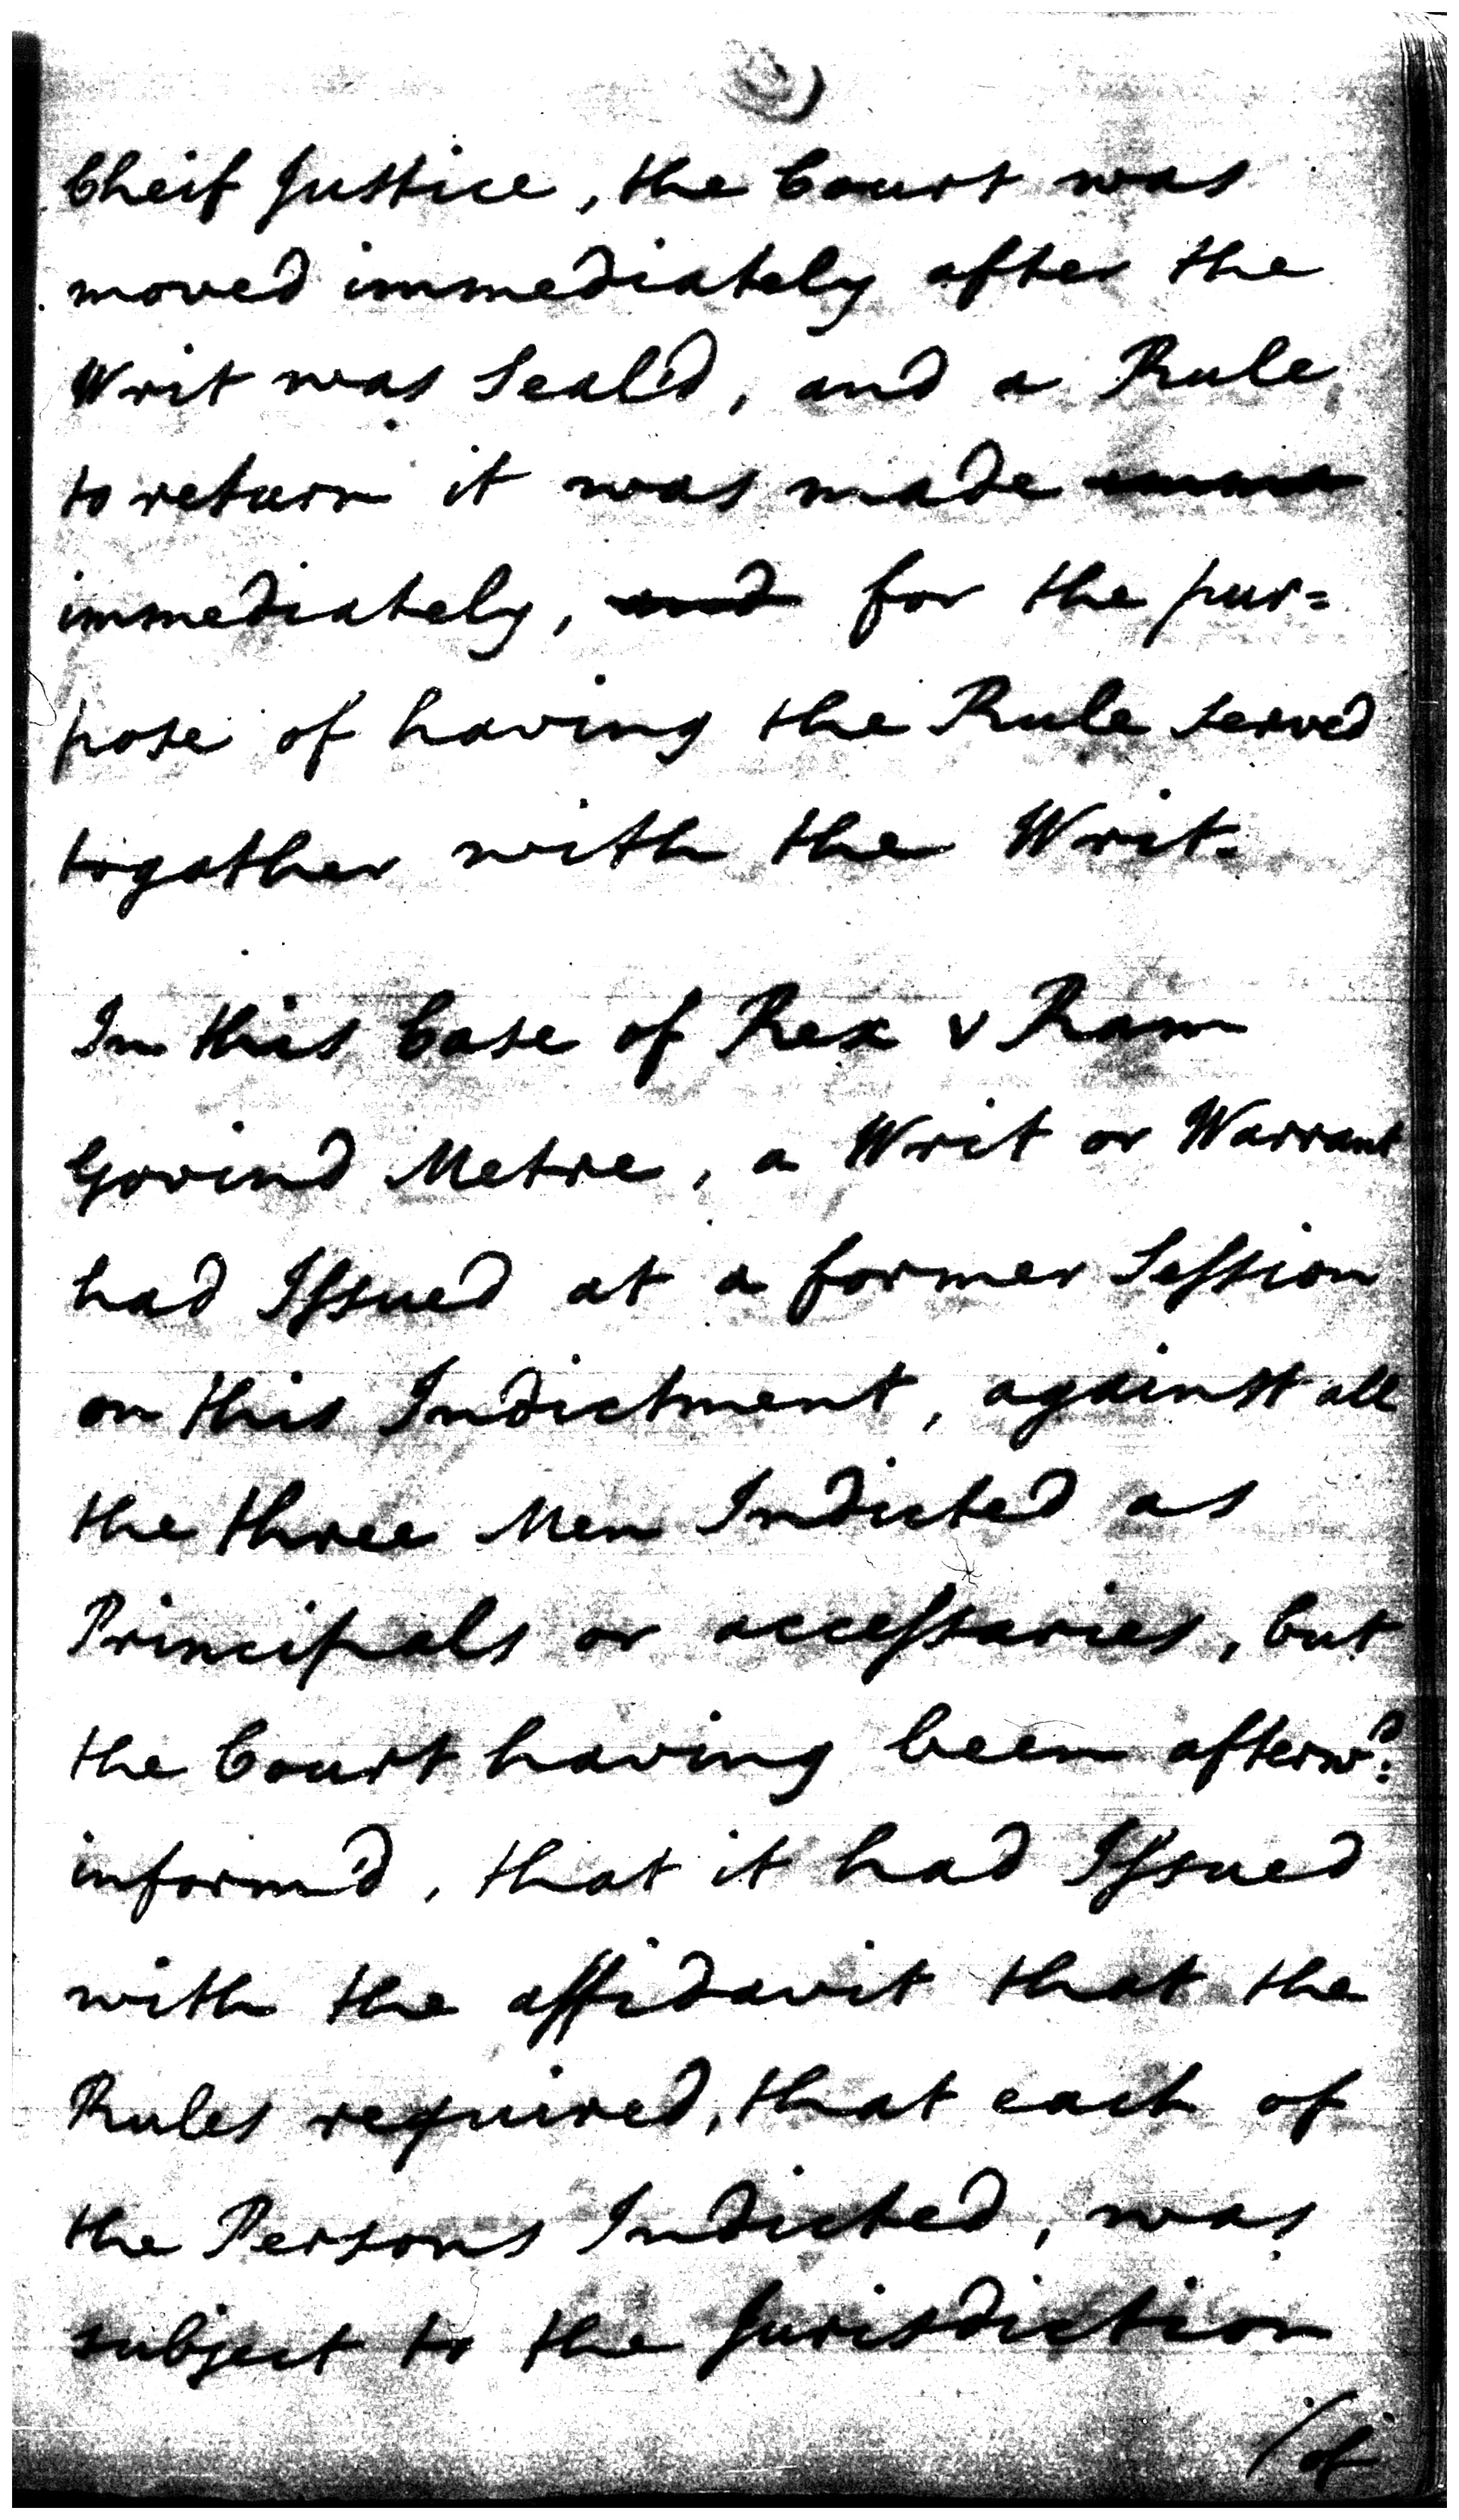 Cheif Justice, the Court was
moved immediately after the
Writ was Seal'd, and a Rule
to return it was made
immediately, and for the pur=
pose of having the Rule served
together with the Writ.
In this Case of Rex v Ram
Govind Metre, a Writ or Warrant
had Issued at a former Session
on this Indictment, against all
the three Men Indicted as
Principals or accessaries, but
the Court having been afterwd:
inform'd, that it had Issued
with the affidavit that the
Rules required, that each of
the Persons Indicted, was
subject to the Jurisdiction
/of